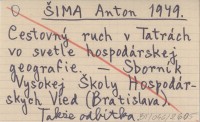 ŠIMA Anton 1949.
Cestovný ruch v Tatrách
vo svetle hospodárskej
geografie. – Sborník
Vysokej Školy Hospodár-
ských Vied (Bratislava).
Takže odbitka.